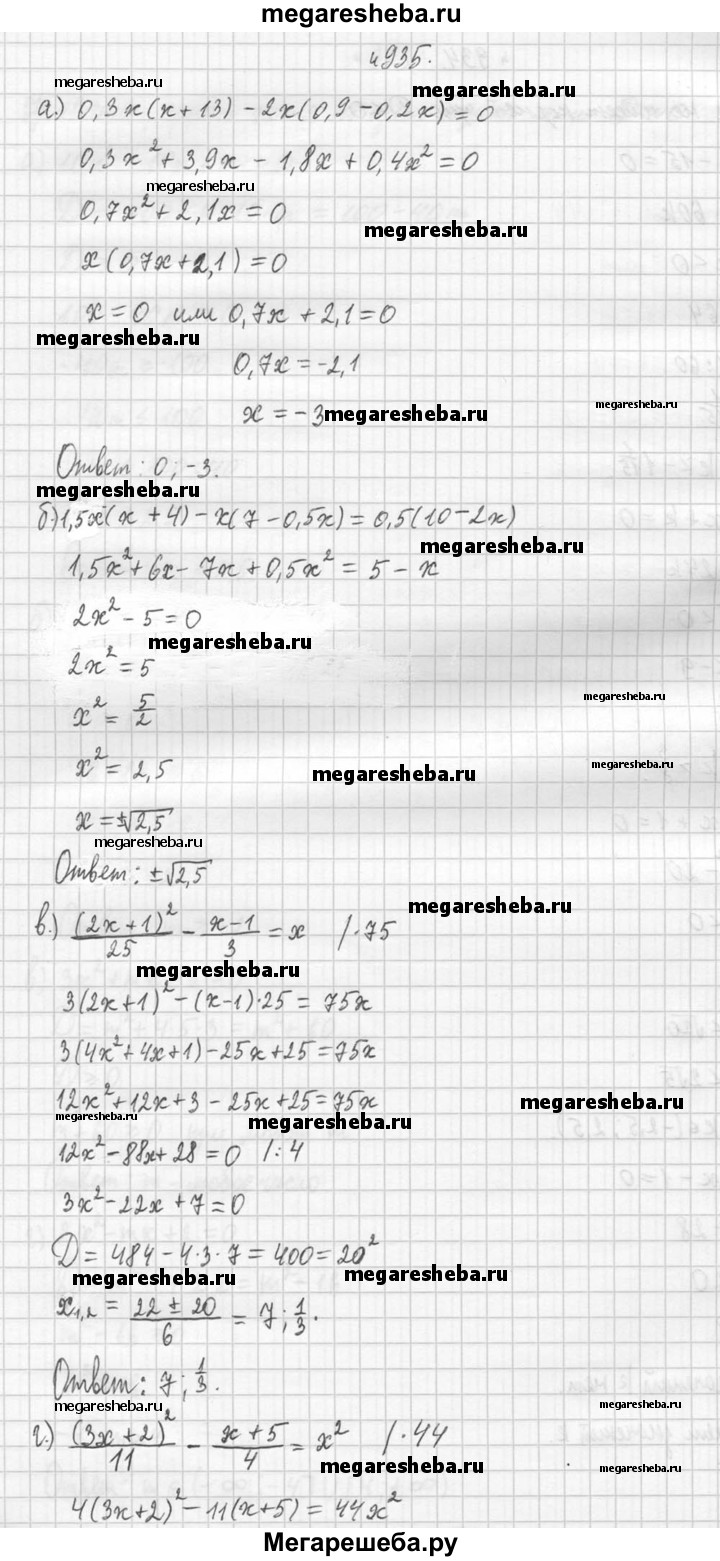 megaresheba.ru
н 935.
megaresheba.ru
megaresheba.ru
а.) 0,3x(x+13) - 2x(0,9-0,2x) = 0
0,3x² + 3,9x - 1,8x + 0,4x² = 0
megaresheba.ru
0,7x² + 2,1x = 0
megaresheba.ru
x(0,7x+2,1) = 0
x = 0 или 0,7x + 2,1 = 0
megaresheba.ru
0,7x = -2,1
x = -3
megaresheba.ru
megaresheba.ru
Ответ: 0; -3.
megaresheba.ru
б.) 1,5x(x+4) - x(7-0,5x) = 0,5(10-2x)
megaresheba.ru
1,5x² + 6x - 7x + 0,5x² = 5 - x
2x² - 5 = 0
megaresheba.ru
2x² = 5
megaresheba.ru
x² = 5/2
x² = 2,5
megaresheba.ru
megaresheba.ru
x = ±√2,5
megaresheba.ru
Ответ: ±√2,5
megaresheba.ru
в.) (2x+1)²/25 - (x-1)/3 = x /·75
megaresheba.ru
3(2x+1)² - (x-1)·25 = 75x
3(4x²+4x+1) - 25x + 25 = 75x
12x² + 12x + 3 - 25x + 25 = 75x
megaresheba.ru
megaresheba.ru
12x² - 88x + 28 = 0 /:4
3x² - 22x + 7 = 0
D = 484 - 4·3·7 = 400 = 20²
megaresheba.ru
megaresheba.ru
x₁,₂ = (22 ± 20)/6 = 7; 1/3.
Ответ: 7; 1/3.
megaresheba.ru
megaresheba.ru
г.) (3x+2)²/11 - (x+5)/4 = x² /·44
megaresheba.ru
megaresheba.ru
4(3x+2)² - 11(x+5) = 44x²
Мегарешеба.ру